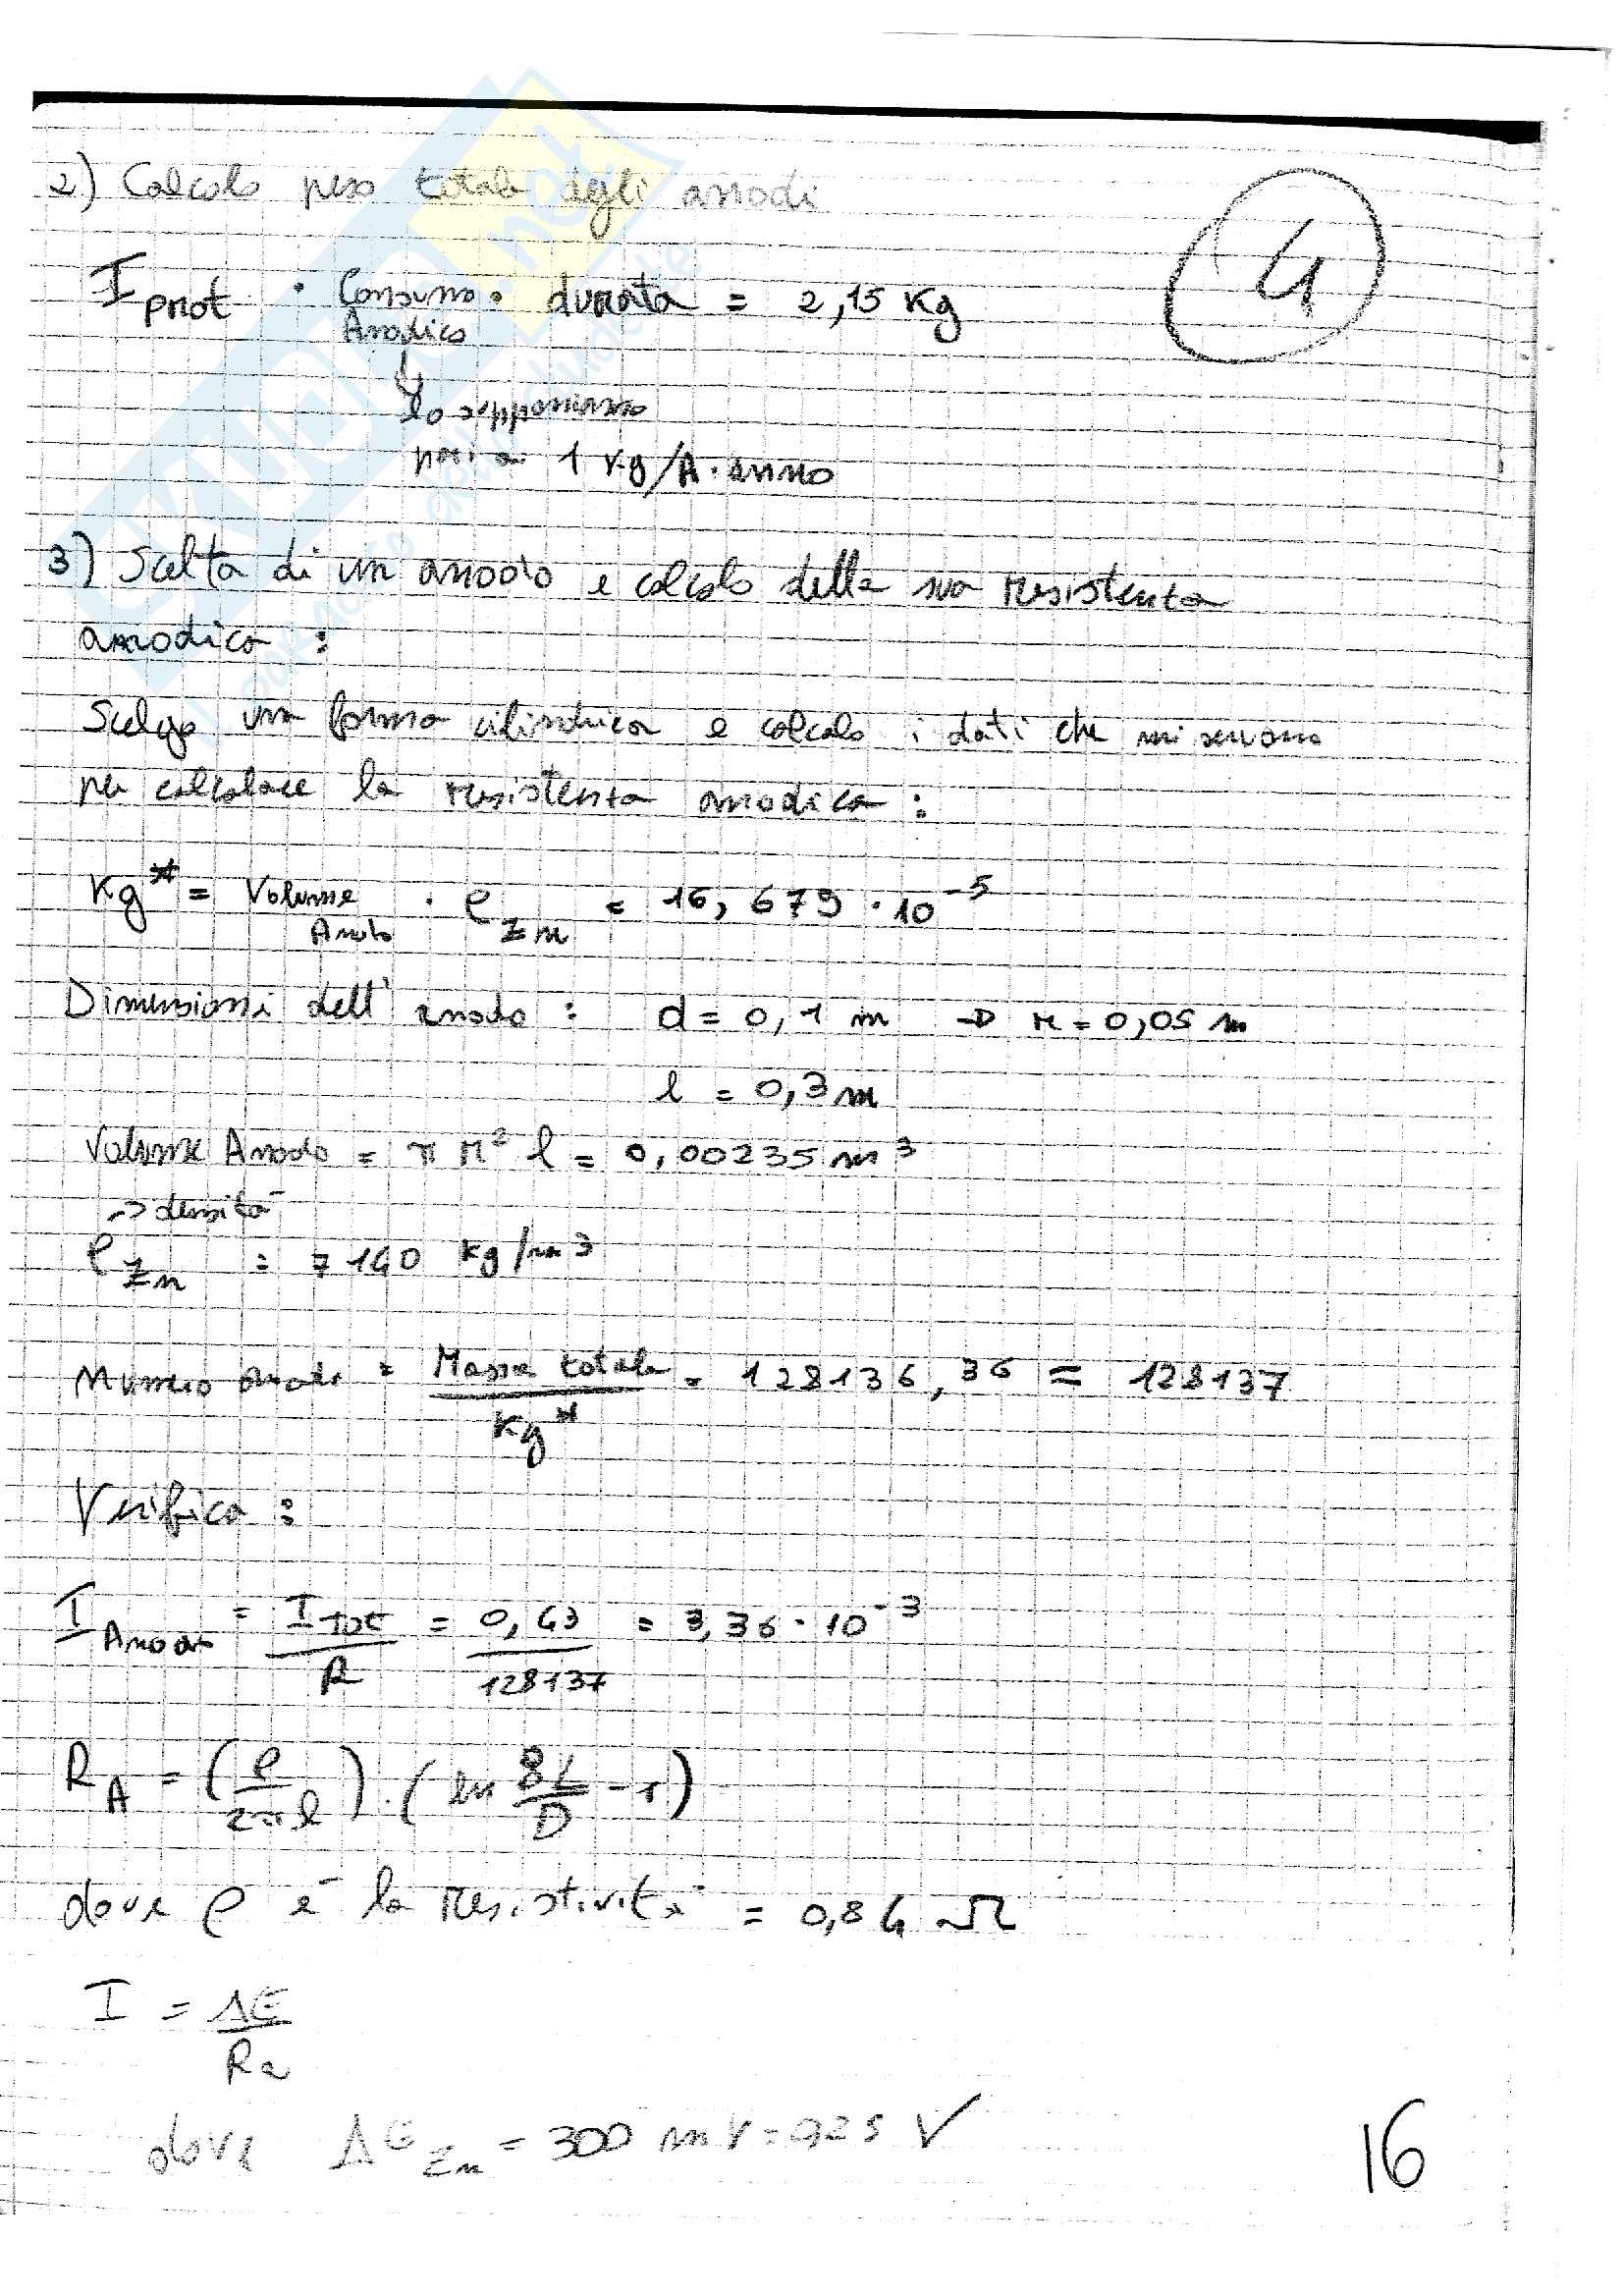 2) Calcolo peso totale degli anodi
4
I prot · Consumo Anodico · durata = 2,15 Kg
lo supponiamo
pari a 1 kg/A·anno
3) Scelta di un anodo e calcolo della sua resistenza
anodica :
Scelgo una forma cilindrica e calcolo i dati che mi servono
per calcolare la resistenza anodica :
Kg* = Volume Anodo · ρ Zn = 16,679 · 10^-5
Dimensioni dell' anodo : d = 0,1 m → r = 0,05 m
l = 0,3 m
Volume Anodo = π r² l = 0,00235 m³
→ densità
ρ Zn = 7140 kg/m³
Numero anodi = Massa totale / Kg* = 128136,36 = 128137
Verifica :
I Anodo = I Tot / R = 0,43 / 128137 = 3,36 · 10^-3
R A = (ρ / 2πl) · (ln 8L / D - 1)
dove ρ è la resistività = 0,84 Ω
I = ΔE / Ra
dove ΔE Zn = 300 mV = V
16